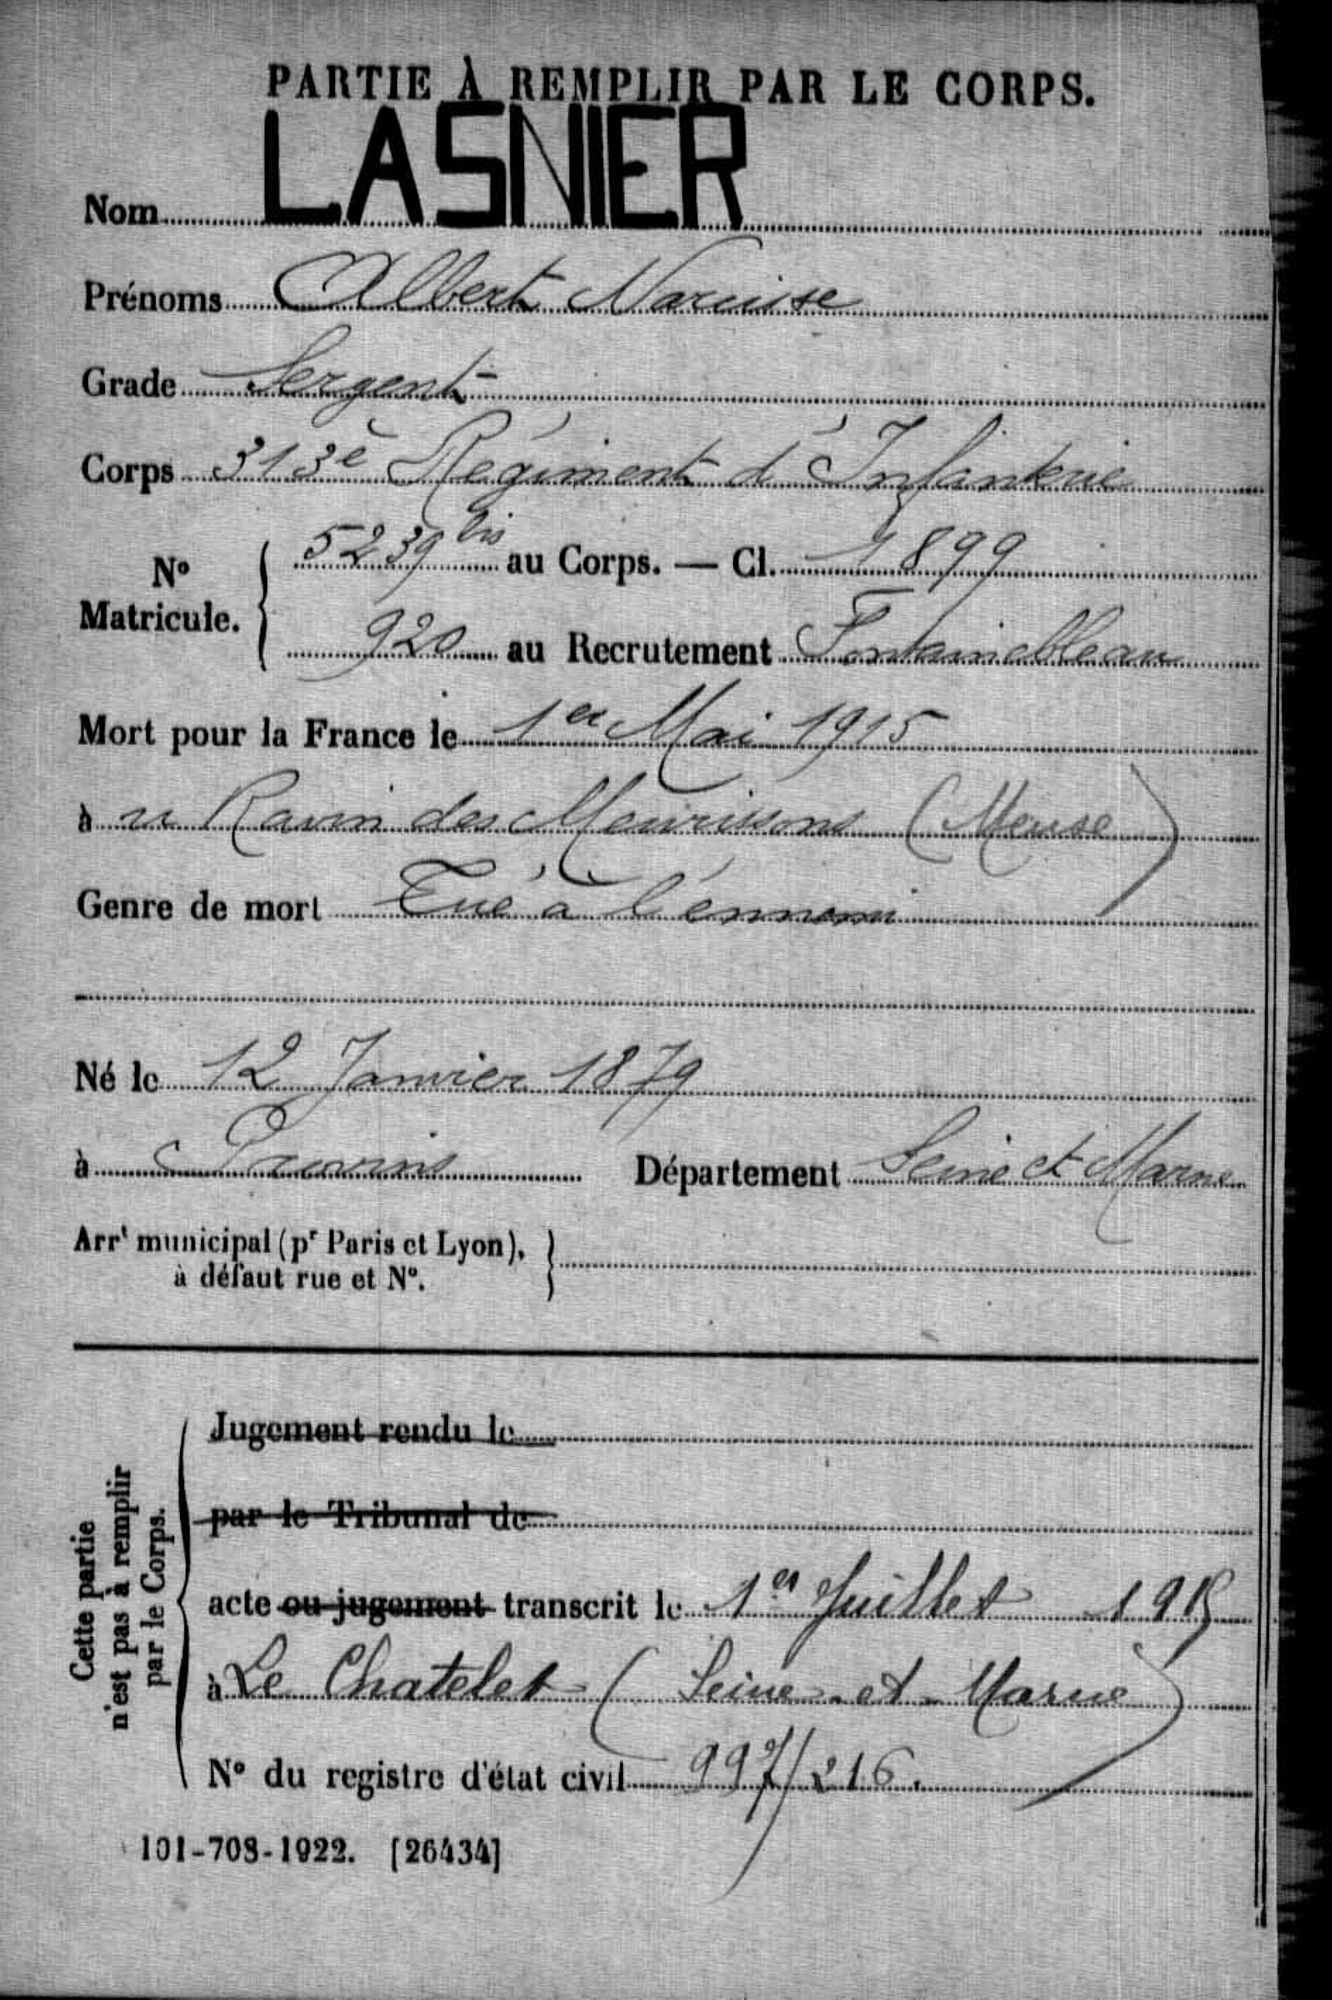 PARTIE À REMPLIR PAR LE CORPS.
Nom LASNIER
Prénoms Albert Narcisse
Grade Sergent
Corps 313e Régiment d'Infanterie
No Matricule. 5239 bis au Corps. — Cl. 1899
920 au Recrutement Fontainebleau
Mort pour la France le 1er Mai 1915
à u Ravin des Meurissons (Meuse)
Genre de mort Tué à l'énnemi
Né le 12 Janvier 1879
à Provins Département Seine et Marne
Arrt municipal (pr Paris et Lyon),
à défaut rue et No.
Cette partie
n'est pas à remplir
par le Corps.
Jugement rendu le
par le Tribunal de
acte ou jugement transcrit le 1er Juillet 1915
à Le Chatelet (Seine et Marne)
No du registre d'état civil 997/216.
101-708-1922. [26434]